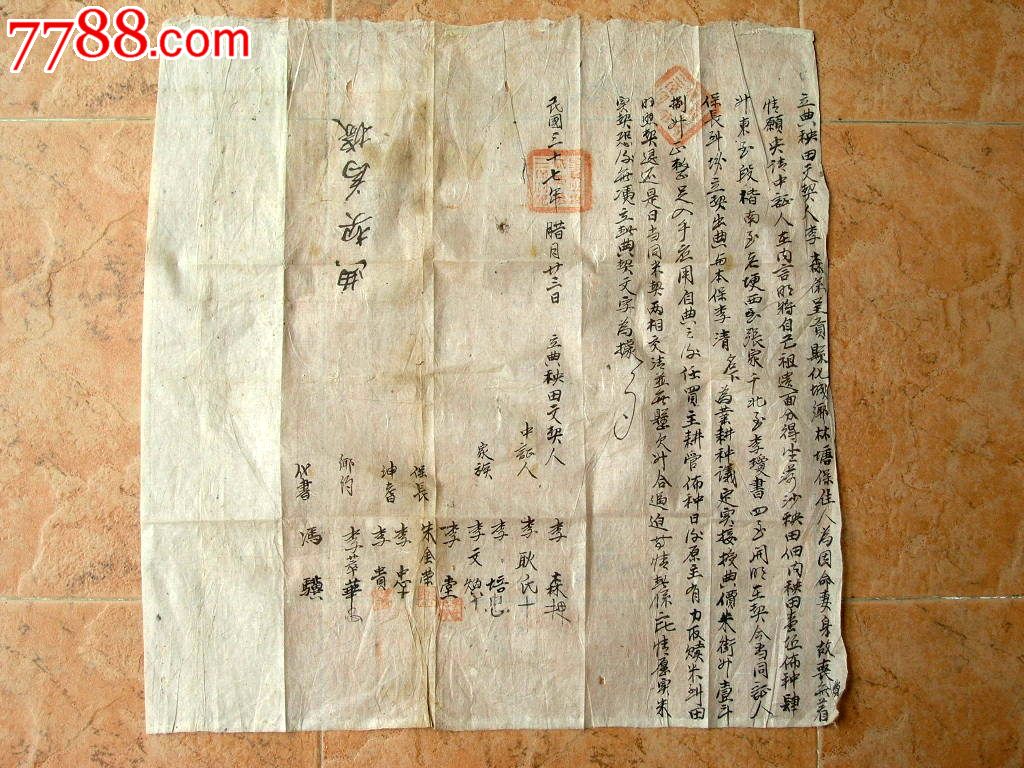 7788.com
立典秧田文契人李森係呈貢縣化城鄉林塘保住人為因命妻身故喪無着
情愿央請中証人在內言明將自己祖遺面分得生 沙秧田 內秧田壹 佈種肆
升東至段楷南至 埂西至張家千北至李瓊書四至開明在契今當同証人
保長 立契出典與本保李清名下為業耕種議定實接授典價米街升壹斗
捌升正整足入手應用自典之後任買主耕管佈種日後原主有力取贖米到田
契退还是日當同米契兩相交清並無懸欠升合逼迫等情契係二比情愿實米
實契恐後無憑立此典契文字為據
民國三十七年腊月廿三日 立典秧田文契人 李森
中証人 李耿氏十
家族 李培忠
李文
李堂
保長 朱金榮
李忠十
紳耆 李貴
鄉約 李萃華
代書 馮驥
典契為據